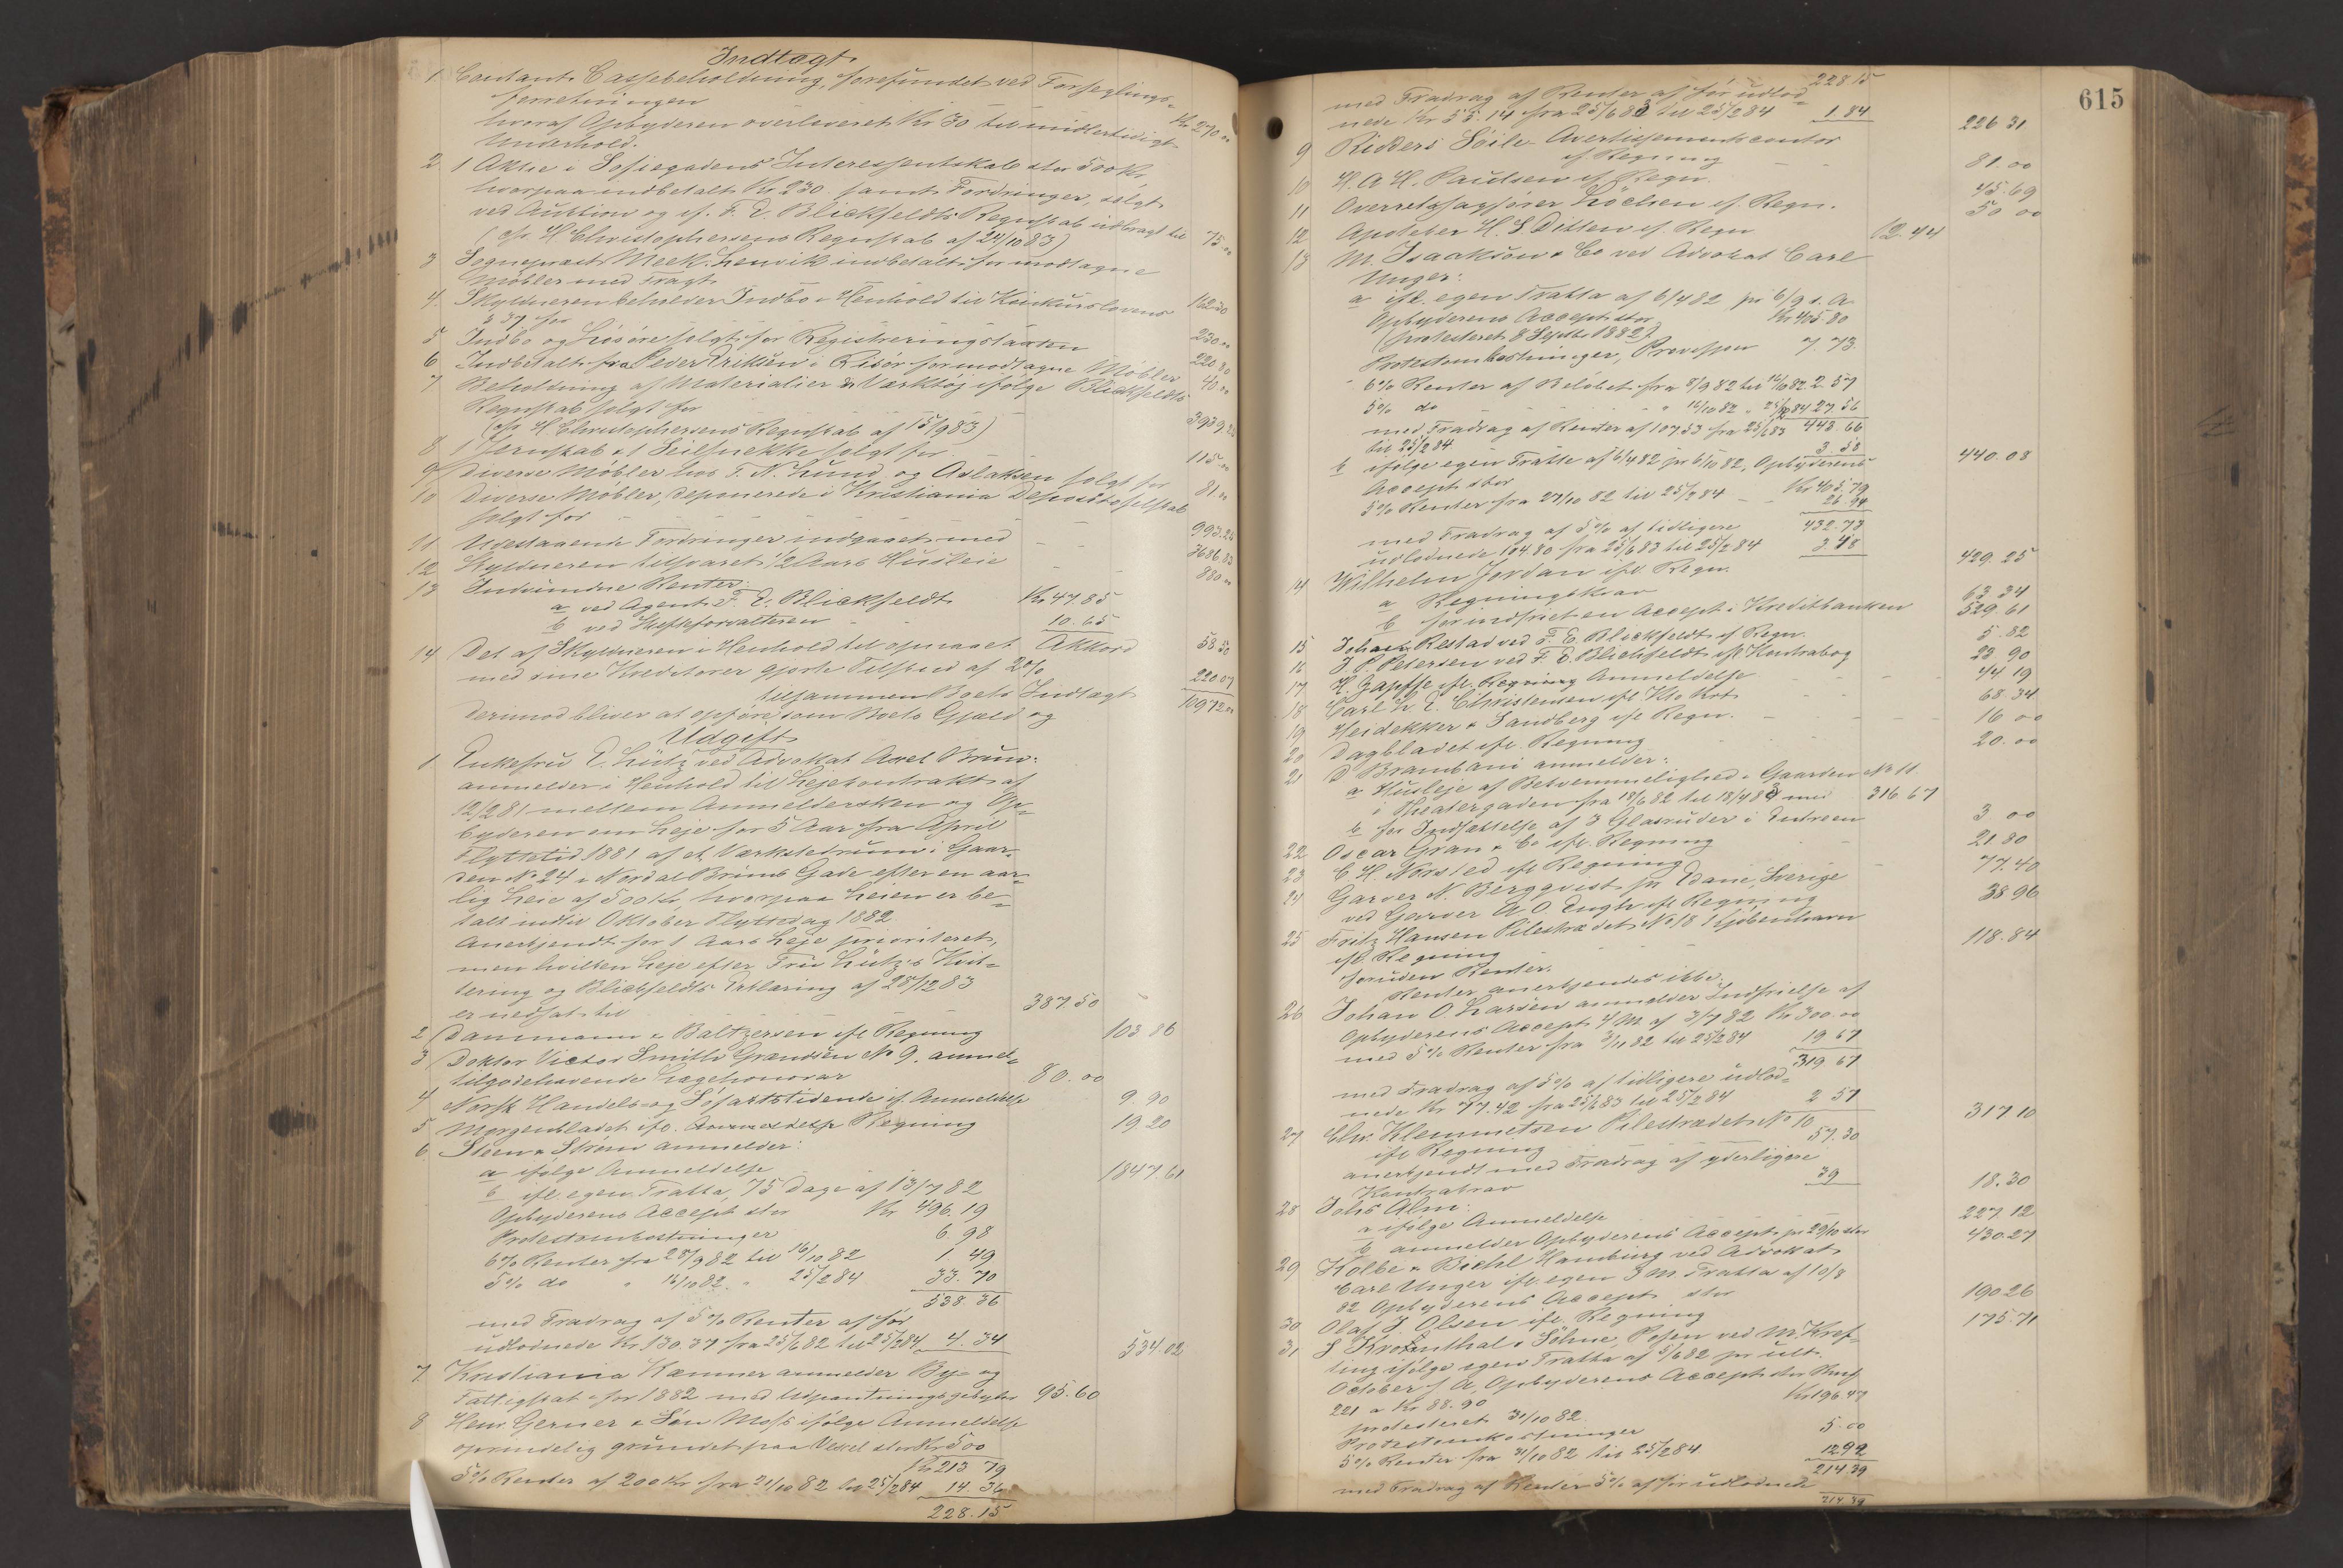 Indtægt
1 Contant Cassebeholdning, forefundet ved Forseglings-
forretningen Kr 270 00
hvoraf Opbyderen overleveret Kr 30 til midlertidigt
Underhold.
2 1 Aktie i Sofiegadens Interessentskab stor 500 Kr
hvorpaa indbetalt Kr 230 samt Fordringer, solgt
ved Auktion og if. F. E. Blickfeldts Regnskab udbragt til 75 00
(cfr H Christophersens Regnskab af 24/10 83)
3 Sognepræst Meek. Lenvik indbetalt for modtagne
Møbler med Fragt 162 30
4. Skyldneren beholder Indbo i Henhold til Konkurslovens
§ 37 for 230 00
5 Indbo og Løsøre solgt for Registreringstaxten 220 80
6 Indbetalt fra Peder Eriksen i Risør for modtagne Møbler 40 00
7 Beholdning af Materialier & Værktøj ifølge Blickfeldts
Regnskab solgt for 3939 25
(cfr H Christophersens Regnskab af 15/9 83)
8 1 Jernskab & 1 solgt for 115 00
9 Diverse Møbler hos T. N. Lund og Aslaksen solgt for 81 00
10 Diverse Møbler, deponerede i Kristiania Depositoselskab
solgt for 993.24
11 Udestaaende Fordringer indgaaet med 3686 83
12 Skyldneren tilsvaret 1/2 Aars Husleie 880 00
13 Indvundne Renter:
a ved Agent F. E. Blickfeldt Kr 47.85
b ved Skifteforvalteren 10.65 58 50
14 Det af Skyldneren i Henhold til opnaaet Akkord
med sine Kreditorer gjorte Tilskud af 2% 220 07
tilsammen Boets Indtægt 10972 00
Derimod bliver at opføre som Boets Gjæld og
Udgift
1 Enkefru E. Lütz ved Advokat Axel Bruun
anmelder i Henhold til Lejekontrakt af
12/2 81 mellem Anmeldersken og Op-
byderen om Leje for 5 Aar fra April
Flyttetid 1881 af et Værkstedrum i Gaar-
den No 24 i Nordal Bruns Gade efter en aar-
lig Leie af 500 Kr, hvorpaa Leien er be-
talt indtil Oktober Flyttedag 1882
anerkjendt for 1 Aars Leje prioriteret,
men hvilken Leje efter Fru Lütz's Kvit-
tering og Blickfeldts Erklæring af 28/12 83
er nedsat til 387.50
2 Dammann & Baltzersen ifl Regning 103 86
3 Doktor Victor Smith Grændsen No 9. anmel-
tilgodehavende Lægehonorar 80.00
4 Norsk Handels- og Søfartstidende if. Anmeldelse 9.90
5 Morgenbladet ifl. Regning 19.20
6 Steen & Strøm anmelder:
a ifølge Anmeldelse 1847.61
b ifl. egen Tratta, 75 Dage af 13/7 82
Opbyderens Accept stor Kr 496.19
Protestomkostninger 6.98
6% Renter fra 28/9 82 til 16/10 82 1.49
5% do " 16/10 82 " 25/2 84 33.70
538.36
med Fradrag af 5% Renter af før
udlodnede Kr. 130.37 fra 25/6 82 til 25/2 84 4.34 534.02
7 Kristiania Kæmner anmelder By- og
Fattigskat for 1882 med Udpantningsgebyhr 95.60
8 Henr. Gerner & Søn Moss ifølge Anmeldelse
oprindelig grundet paa Vexel stor Kr 500
Kr 213 79
5% Renter af 200 Kr fra 21/10 82 til 25/2 84 14.36
228.15
615
228 15
med Fradrag af Renter af før udlod-
nede Kr 55.14 fra 25/6 83 til 25/2 84 1.84 226 31
9 Ridders Söile-Avertissementscontor
if. Regning 81.00
10 H. A. H. Paulsen if. Regn. 45.69
11 Overretssagfører Löchen if. Regn. 50 00
12 Apoteker H. S. Ditten if. Regn 12.44
13 M. Isaaksen & Co ved Advokat Carl
Unger:
a ifl. egen Tratta af 6/4 82 pr 6/9 s. A.
Opbyderens Accept stor Kr 405.80
(protesteret 8 Septbr 1882)
Protestomkostninger, Provision 7.73.
6% Renter af Beløbet fra 8/9 82 til 16/10 82 2 57
5% do " 16/10 82 " 25/2 84 27.56
med Fradrag af Renter af 107 53 fra 25/6 83 443.66
til 25/2 84 3.58 440.08
b ifølge egen Tratta af 6/4 82 pr 6/10 82, Opbyderens
Accept stor Kr 405.79
5% Renter fra 27/10 82 til 25/2 84 26.94
432.73
med Fradrag af 5% af tidligere
udlodnede 104.80 fra 25/6 83 til 25/2 84 3.48 429.25
14 Wilhelm Jordan ifl. Regn.
a Regningskrav 63 34
b for indfriet en Accept i Kreditbanken 529.61
15 Johan Restad ved F. E. Blickfeldt if Regn. 5.82
16 J. P. Petersen ved F. E. Blickfeldt ifl Kontrabog 23 90
17 H. Zapffe ifl. Anmeldelse 44 19
18 Carl H. E. Christensen ifl Kto Krt 68.34
19 Heidekker & Sandberg ifl Regn. 16 00
20 Dagbladet ifl. Regning 20.00
21 D Brambani anmelder:
a Husleje af Bekvemmelighed i Gaarden No 11
i Theatergaden fra 18/6 82 til 18/4 83 med 316.67
b for Indsættelse af 3 Glasruder i Entreen 3 00
22 Oscar Gran & Co ifl. Regning 21.80
23 C. H. Norsted ifl Regning 77.40
24 Garver N. Bergqvist pr Edane, Sverige
ved Garver A. O. Engh ifl Regning 38 96
25 Fritz Hansen Pilestrædet No 18 Kjöbenhavn
ifl. Regning 118.84
foruden Renter.
Renter anerkjendes ikke.
26 Johan O. Larsen anmelder Indfrielse af
Opbyderens Accept 4 M af 3/7 82 Kr 300.00
med 5% Renter fra 3/11 82 til 25/2 84 19 67
319 67
med Fradrag af 5% af tidligere udlod-
nede Kr 77.42 fra 25/6 83 til 25/2 84 2 57 317 10
27 Chr. Klemmetsen Pilestrædet No 10
ifl Regning 57.30
anerkjendt med Fradrag af yderligere
Kontrakrav 39 18.30
28 Johs Alm:
a ifølge Anmeldelse 227.12
b anmelder Opbyderens Accept pr 29/10 stor 430.27
29 Kolbe & Biehl Hamburg ved Advokat
Carl Unger ifl. egen 3 M. Tratta af 10/8
82 Opbyderens Accept stor 190 26
30 Olaf J. Olsen ifl. Regning 175.71
31 S Krotenthal & Söhne, Posen ved M. Kref-
ting ifølge egen Tratta af 5/6 82 pr ult.
October s A, Opbyderens Accept stor
221 a Kr 88.90 Kr 196.47
protesteret 31/10 82.
Protestomkostninger 5.00
5% Renter fra 31/10 82 til 25/2 84 12 92
214.39
med Fradrag af Renter 5% af før udlodnede
214.39